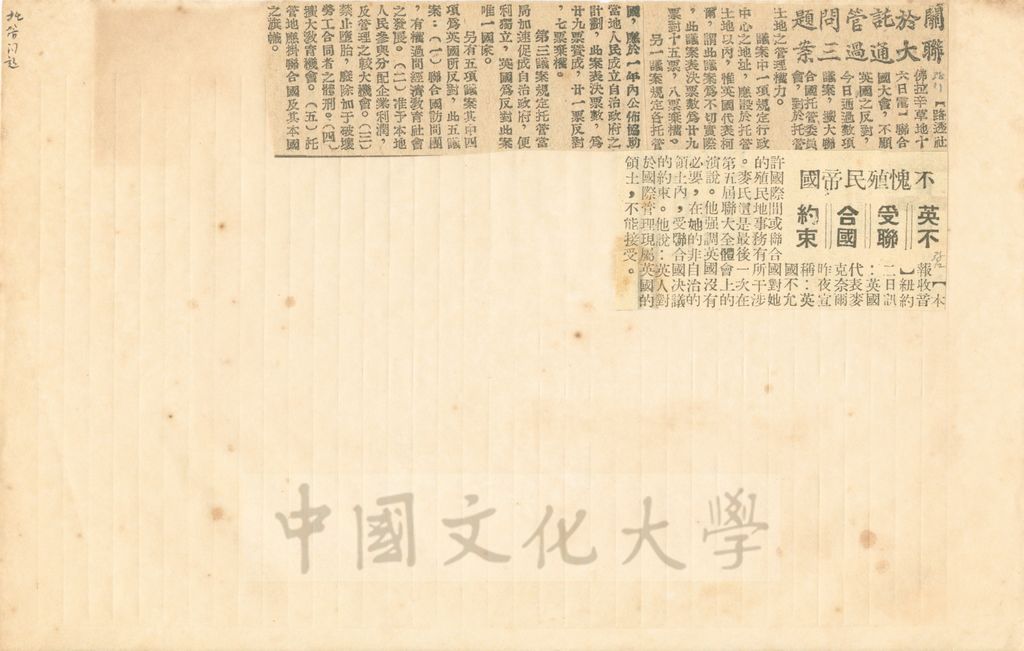 聯大通過三案
關於託管問題
【路透社
佛拉辛草地十
六日電】聯合
國大會，不顧
英國之反對，
今日通過數項
議案，擴大聯
合國托管委員
會，對於托管
土地之管理權力。
議案中一項規定行政
中心之地址，應設於托管
土地以內，惟英國代表柯
爾，謂此議案為不切實際
，此議案表決票數為廿九
票對十五票，八票棄權。
另一議案規定各托管
國，應於一年內公佈協助
當地人民成立自治政府之
計劃，此案表決票數，為
廿九票賛成，廿一票反對
，七票棄權。
第三議案規定托管當
局加速促成自治政府，使
利獨立，英國為反對此案
唯一國家。
另有五項議案其中四
項為英國所反對，此五議
案：（一）聯合國訪問團
，有權過問經濟教育社會
之發展。（二）准予本地
人民參與分配企業利潤，
及管理之較大機會。（三）
禁止墮胎，廢除加于破壞
勞工合同者之體刑。（四）
擴大教育機會。（五）托
管地應掛聯合國及其本國
之旗幟。
不愧殖民帝國
英不受聯合國約束
【本
報收音
】紐約
二日訊
：英國
代表麥
克奈爾
昨夜宣
稱：英
國不允
許國際間或聯合國對她
的殖民地事務有所干涉
。麥氏這是最後一次在
第五屆聯大全體會上的
演說。他强調英國沒有
必要，在她的非自治的
領土內，受聯合國決議
的約束。他說：英人對
於國際管理現屬英國的
領土，不能接受。
中國文化大學